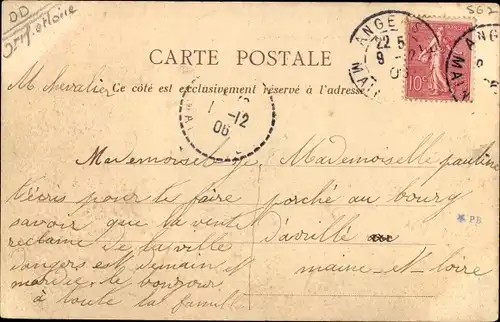 OD
562
ANGERS
22 5
9
MAI
10c
ANG
MAI
CARTE POSTALE
M chevalier
Ce côté est exclusivement réservé à l'adresse
1 -12
06
Mademoiselle je
t'écris pour te faire
savoir que la vente
de la ville
dangers est demain et
le bonjour
à toute ta famille
Mademoiselle pauline
porché au bourg
d'avrillé
maine-et-loire
PB